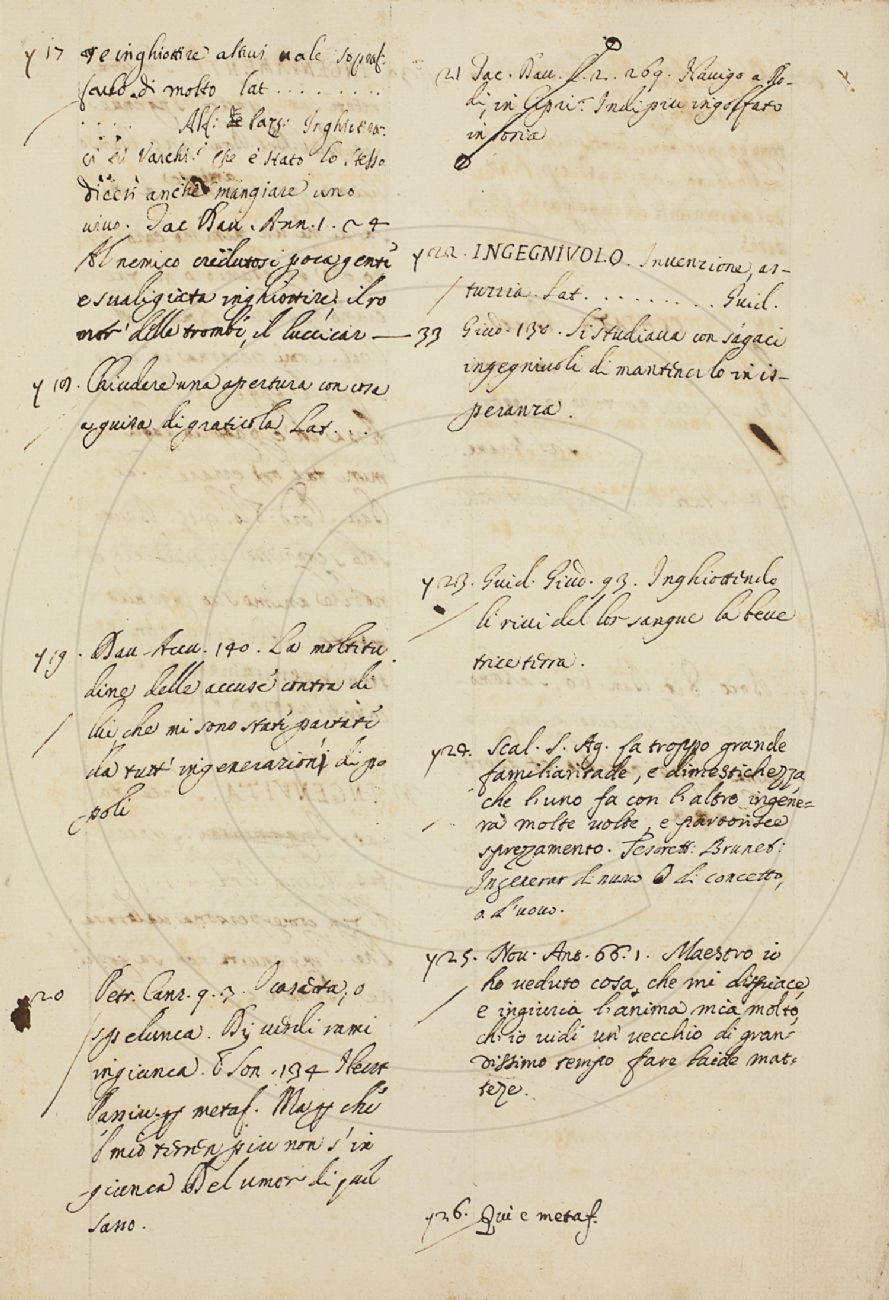 y 17 e inghiottire altrui vale sopraf-
di molto lat ........
.... Alf: Pazzi
ci è stato lo stesso
anche mangiare uno
vivo. Tac Dav. Ann. 1. 24
Al nemico credutosi poca gente
e svaligiata inghiottire il ro
delle trombe, il luccicar — 33
y 18. Chiudere una apertura con cosa
a guisa di graticola Lat...
y 19. Dav. Accu. 140. La moltitu
dine delle accuse contra di
lui, che mi sono state portate
da tutt' ingenerazioni di po
poli
20 Petr. Canz. 9. 3. O casetta, o
spelunca. Di verdi rami
ingiunca. E Son. 134
Passiv. metaf. Ma che
l mio terren piu non s' in
giunca Del umor di quel
sasso.
21 Tac. Dav. 2. 269. Navigò a Ro-
di, in Cipri: Indi piu ingolfato
in soria
y 22. INGEGNIVOLO. Invenzione, as-
tuzia. Lat. ........ Guid.
Giud. 130. Si studiava con sagaci
ingegnivoli di mantenerlo in is-
peranza.
y 23. Guid. Giud. 93. Inghiottendo
li rivi del lor sangue la beve
trice terra.
y 24. Scal. S. Ag. La troppo grande
familiaritade, e dimestichezza
che l'uno fa con l'altro ingene=
ra molte volte, e partorisce
sprezzamento. Tesorett: Brunet:
Ingenerar di nuovo O di concetto,
o d'uovo.
y 25. Nov. Ant. 66. 1. Maestro io
ho veduto cosa, che mi dispiace,
e ingiuria l'anima mia molto,
ch' io vidi un vecchio di gran-
dissimo tempo fare laide mat-
tezze.
y 26. Qui e metaf.